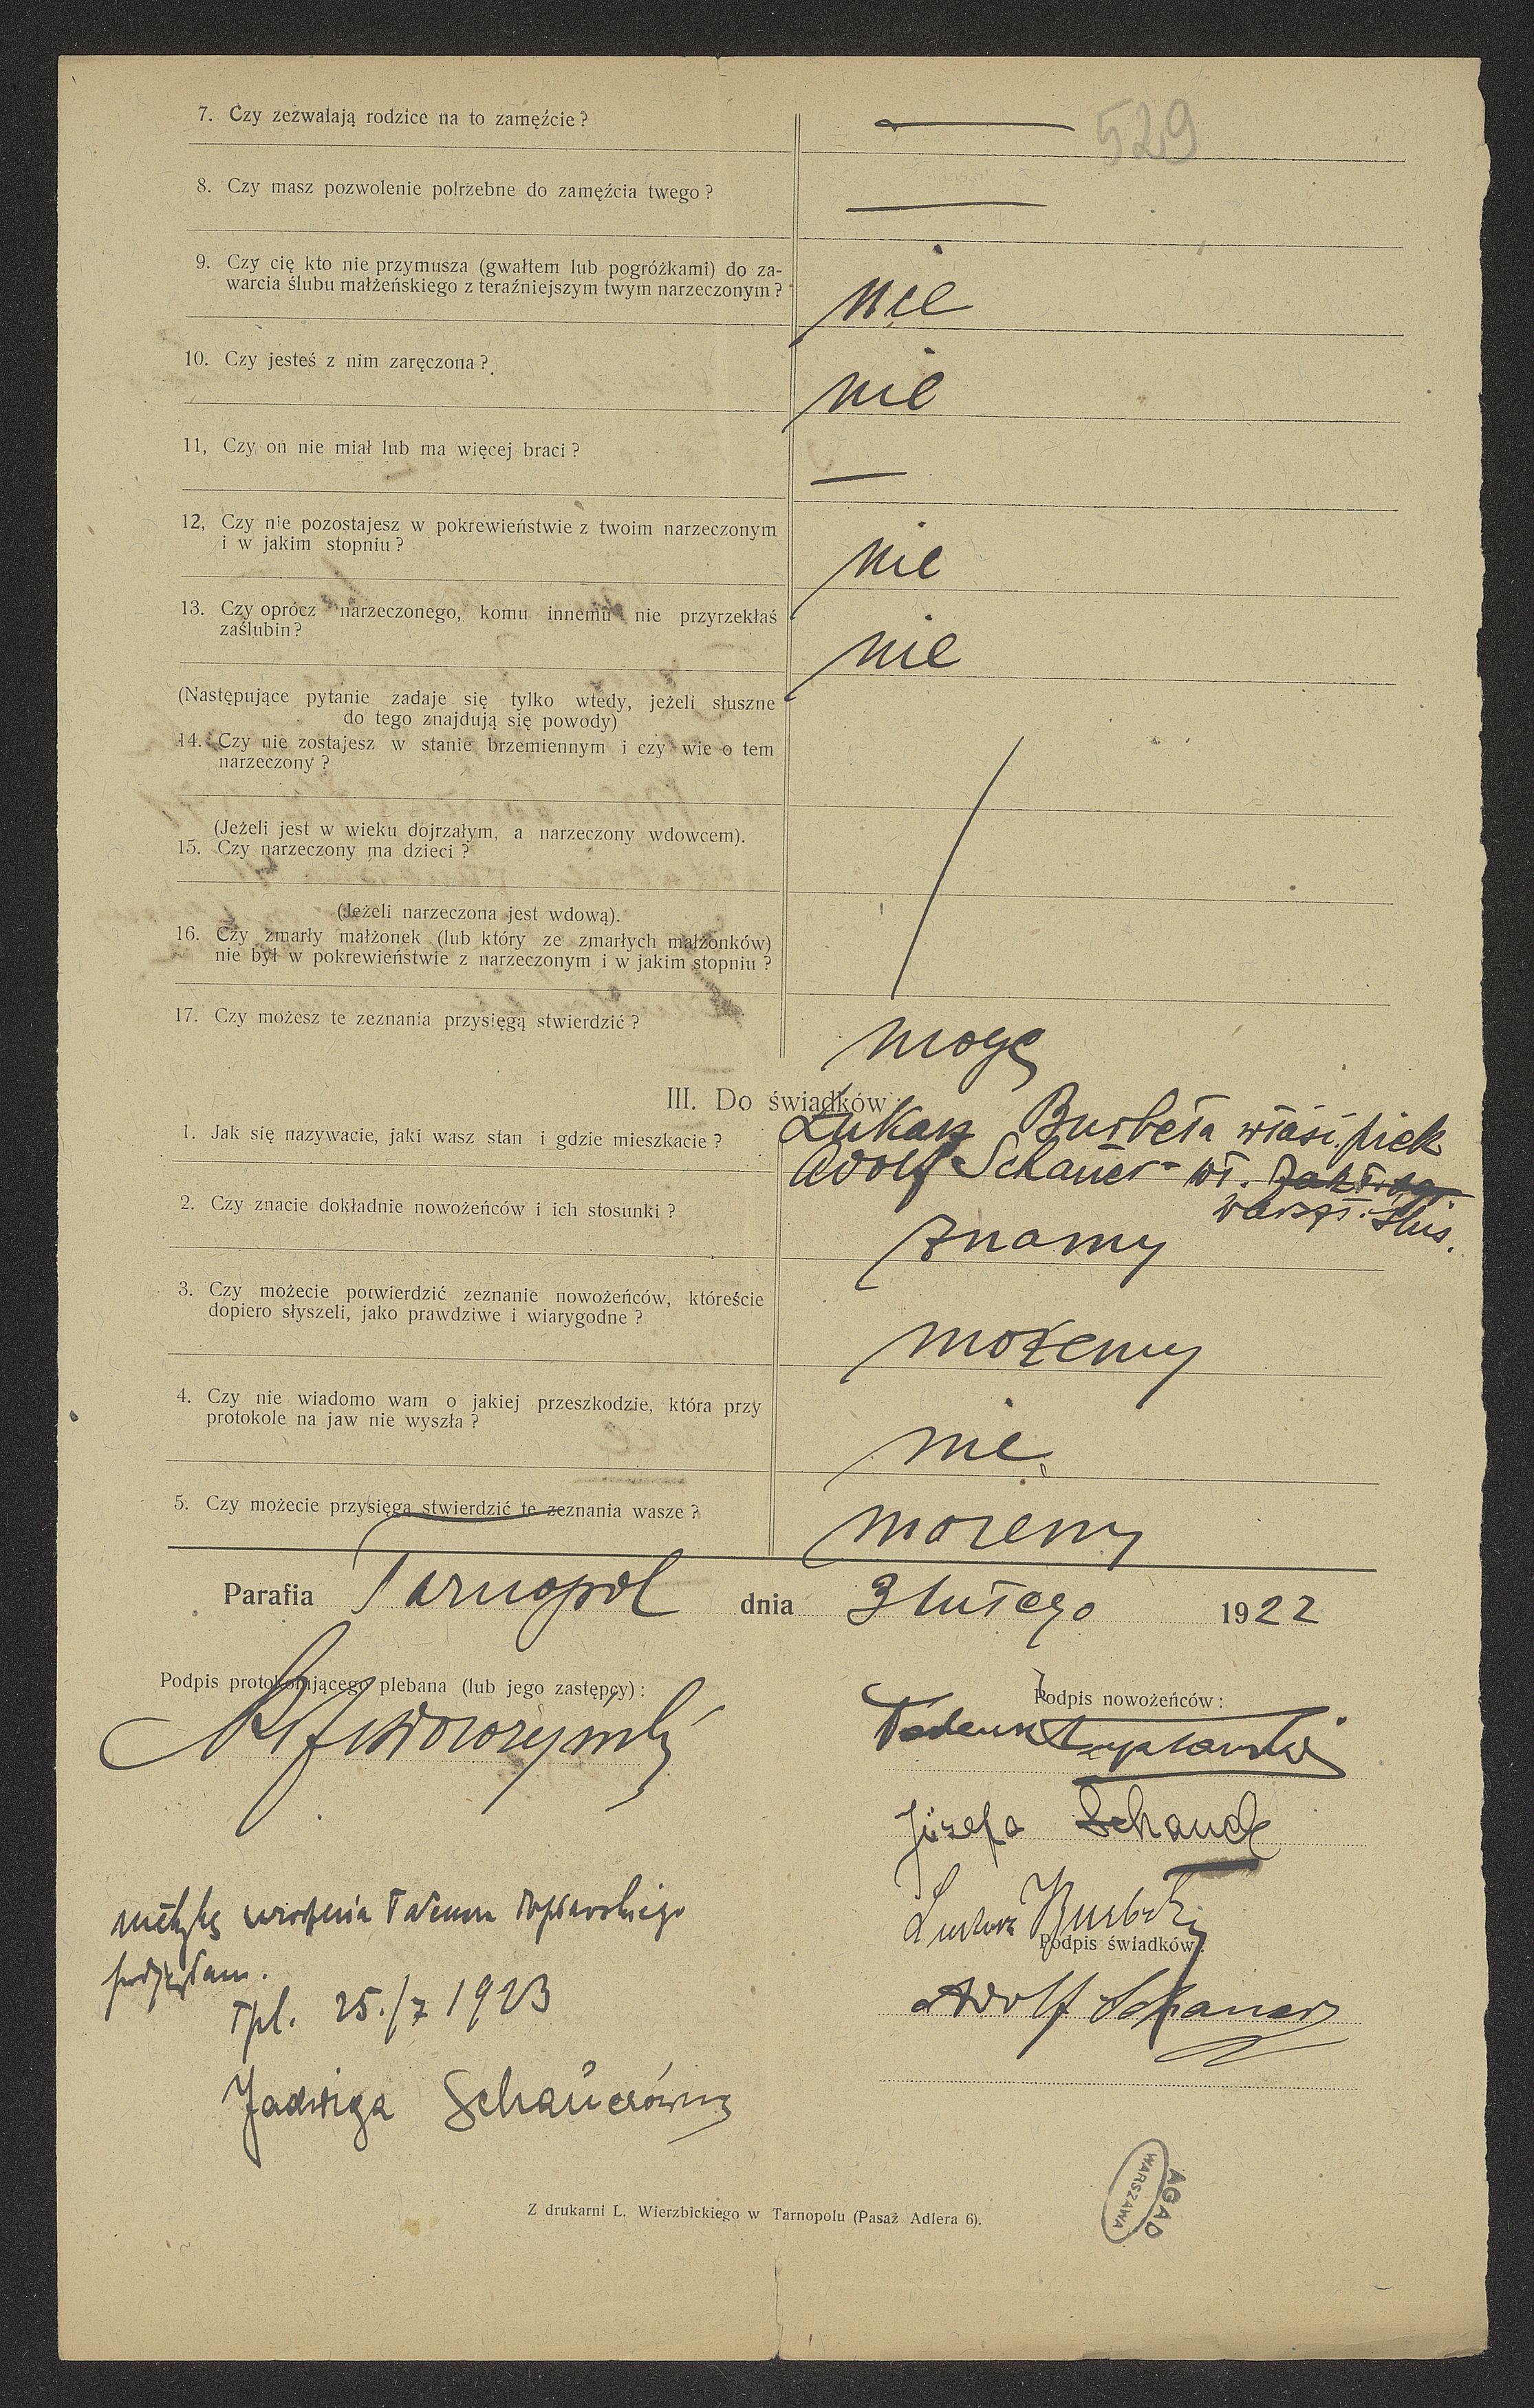 529
7. Czy zezwalają rodzice na to zamęźcie ?
8. Czy masz pozwolenie potrzebne do zamęźcia twego ?
9. Czy cię kto nie przymusza (gwałtem lub pogróżkami) do za-
warcia ślubu małżeńskiego z teraźniejszym twym narzeczonym ?
nie
10. Czy jesteś z nim zaręczona ?
nie
11, Czy on nie miał lub ma więcej braci ?
12, Czy nie pozostajesz w pokrewieństwie z twoim narzeczonym
i w jakim stopniu ?
nie
13. Czy oprócz narzeczonego, komu innemu nie przyrzekłaś
zaślubin ?
nie
(Następujące pytanie zadaje się tylko wtedy, jeżeli słuszne
do tego znajdują się powody)
14. Czy nie zostajesz w stanie brzemiennym i czy wie o tem
narzeczony ?
(Jeżeli jest w wieku dojrzałym, a narzeczony wdowcem).
15. Czy narzeczony ma dzieci ?
(Jeżeli narzeczona jest wdową).
16. Czy zmarły małżonek (lub który ze zmarłych małżonków)
nie był w pokrewieństwie z narzeczonym i w jakim stopniu ?
17. Czy możesz te zeznania przysięgą stwierdzić ?
mogę
III. Do świadków
1. Jak się nazywacie, jaki wasz stan i gdzie mieszkacie ?
Łukasz Burbeła właśc. piek
Adolf Schauer wł.
warszt. ślus.
2. Czy znacie dokładnie nowożeńców i ich stosunki ?
znamy
3. Czy możecie potwierdzić zeznanie nowożeńców, któreście
dopiero słyszeli, jako prawdziwe i wiarygodne ?
możemy
4. Czy nie wiadomo wam o jakiej przeszkodzie, która przy
protokole na jaw nie wyszła ?
nie
5. Czy możecie przysięgą stwierdzić te zeznania wasze ?
możemy
Parafia Tarnopol dnia 3 lutego 1922
Podpis protokołującego plebana (lub jego zastępcy) :
Podpis nowożeńców :
Tadeusz
Józefa Schauer
Łukasz Burbeła
Podpis świadków :
Adolf Schauer
metrykę urodzenia Tadeusza
podjęłam.
Tpl. 25./7 1923
Jadwiga Schauerówna
Z drukarni L. Wierzbickiego w Tarnopolu (Pasaż Adlera 6).
AGAD
WARSZAWA